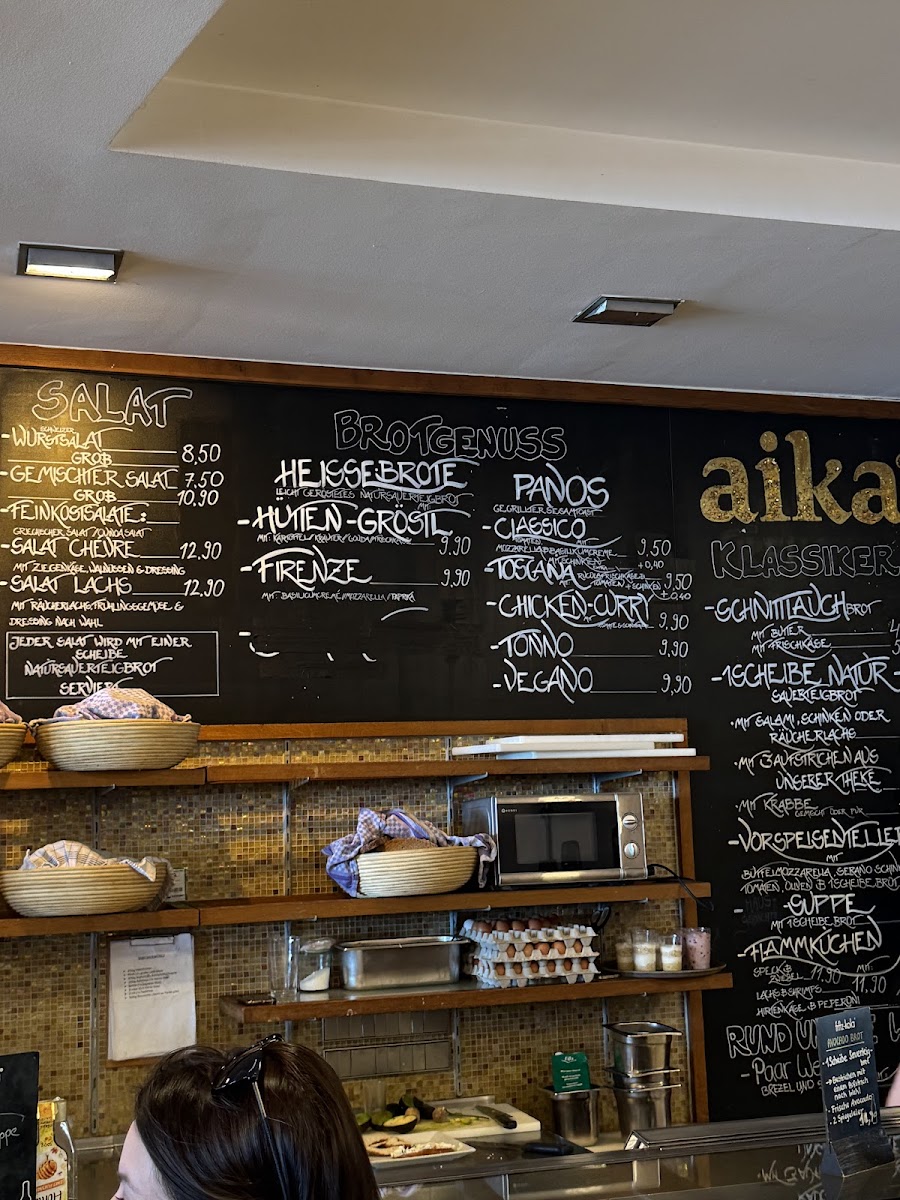 SALAT
SCHWEIZER
-WURSTSALAT
GROß 8,50
-GEMISCHTER SALAT 7,50
GROß 10,90
-FEINKOSTSALATE:
GRIECHISCHER SALAT / QUINOA SALAT
-SALAT CHÈVRE 12,90
MIT ZIEGENKÄSE, WALNÜSSEN & DRESSING
-SALAT LACHS 12,90
MIT RÄUCHERLACHS, FRÜHLINGSGEMÜSE &
DRESSING NACH WAHL
JEDER SALAT WIRD MIT EINER
SCHEIBE
NATURSAUERTEIGBROT
SERVIERT
BROTGENUSS
HEISSE BROTE
LEICHT GERÖSTETES NATURSAUERTEIGBROT
MIT
-HÜTTEN-GRÖSTL
MIT: KARTOFFEL / KRÄUTER / GOUDA / FRISCHKÄSE 9,90
-FIRENZE 9,90
MIT: BASILIKUMCREME / MOZZARELLA / PAPRIKA
PANOS
GEGRILLTER SESAMTOAST
-CLASSICO MIT
TOMATEN,
MOZZARELLA & BASILIKUMCREME 9,50
MIT SCHINKEN +0,40
-TOSCANA RUCOLA FRISCHKÄSE & TOMATEN 9,50
+ SCHINKEN +0,40
-CHICKEN-CURRY
MIT 9,90
-TONNO 9,90
-VEGANO 9,90
aika
KLASSIKER
-SCHNITTLAUCHBROT
MIT BUTTER 4
MIT FRISCHKÄSE 5
-1 SCHEIBE NATUR-
SAUERTEIGBROT
•MIT SALAMI, SCHINKEN ODER
RÄUCHERLACHS
•MIT 3 AUFSTRICHEN AUS
UNSERER THEKE
•MIT KRABBE
GEMISCHT ODER FÜR
-VORSPEISENTELLER
MIT
BÜFFELMOZZARELLA, SERANO SCHIN
TOMATEN, OLIVEN & 1 SCHEIBE BROT
-SUPPE
MIT 1 SCHEIBE BROT
-FLAMMKUCHEN
SPECK & ZWIEBEL 11,90 MIT: 11,90
LACHS & SHRIMPS
HIRTENKÄSE & PEPERONI
RUND UM
-Paar We
BREZEL UND
AVOCADO BROT
•1 Scheibe Sauerteig-
brot
bestrichen mit
einem Aufstrich
nach Wahl
•Frische Avocado
•2 Spiegeleier
14,90
ppe